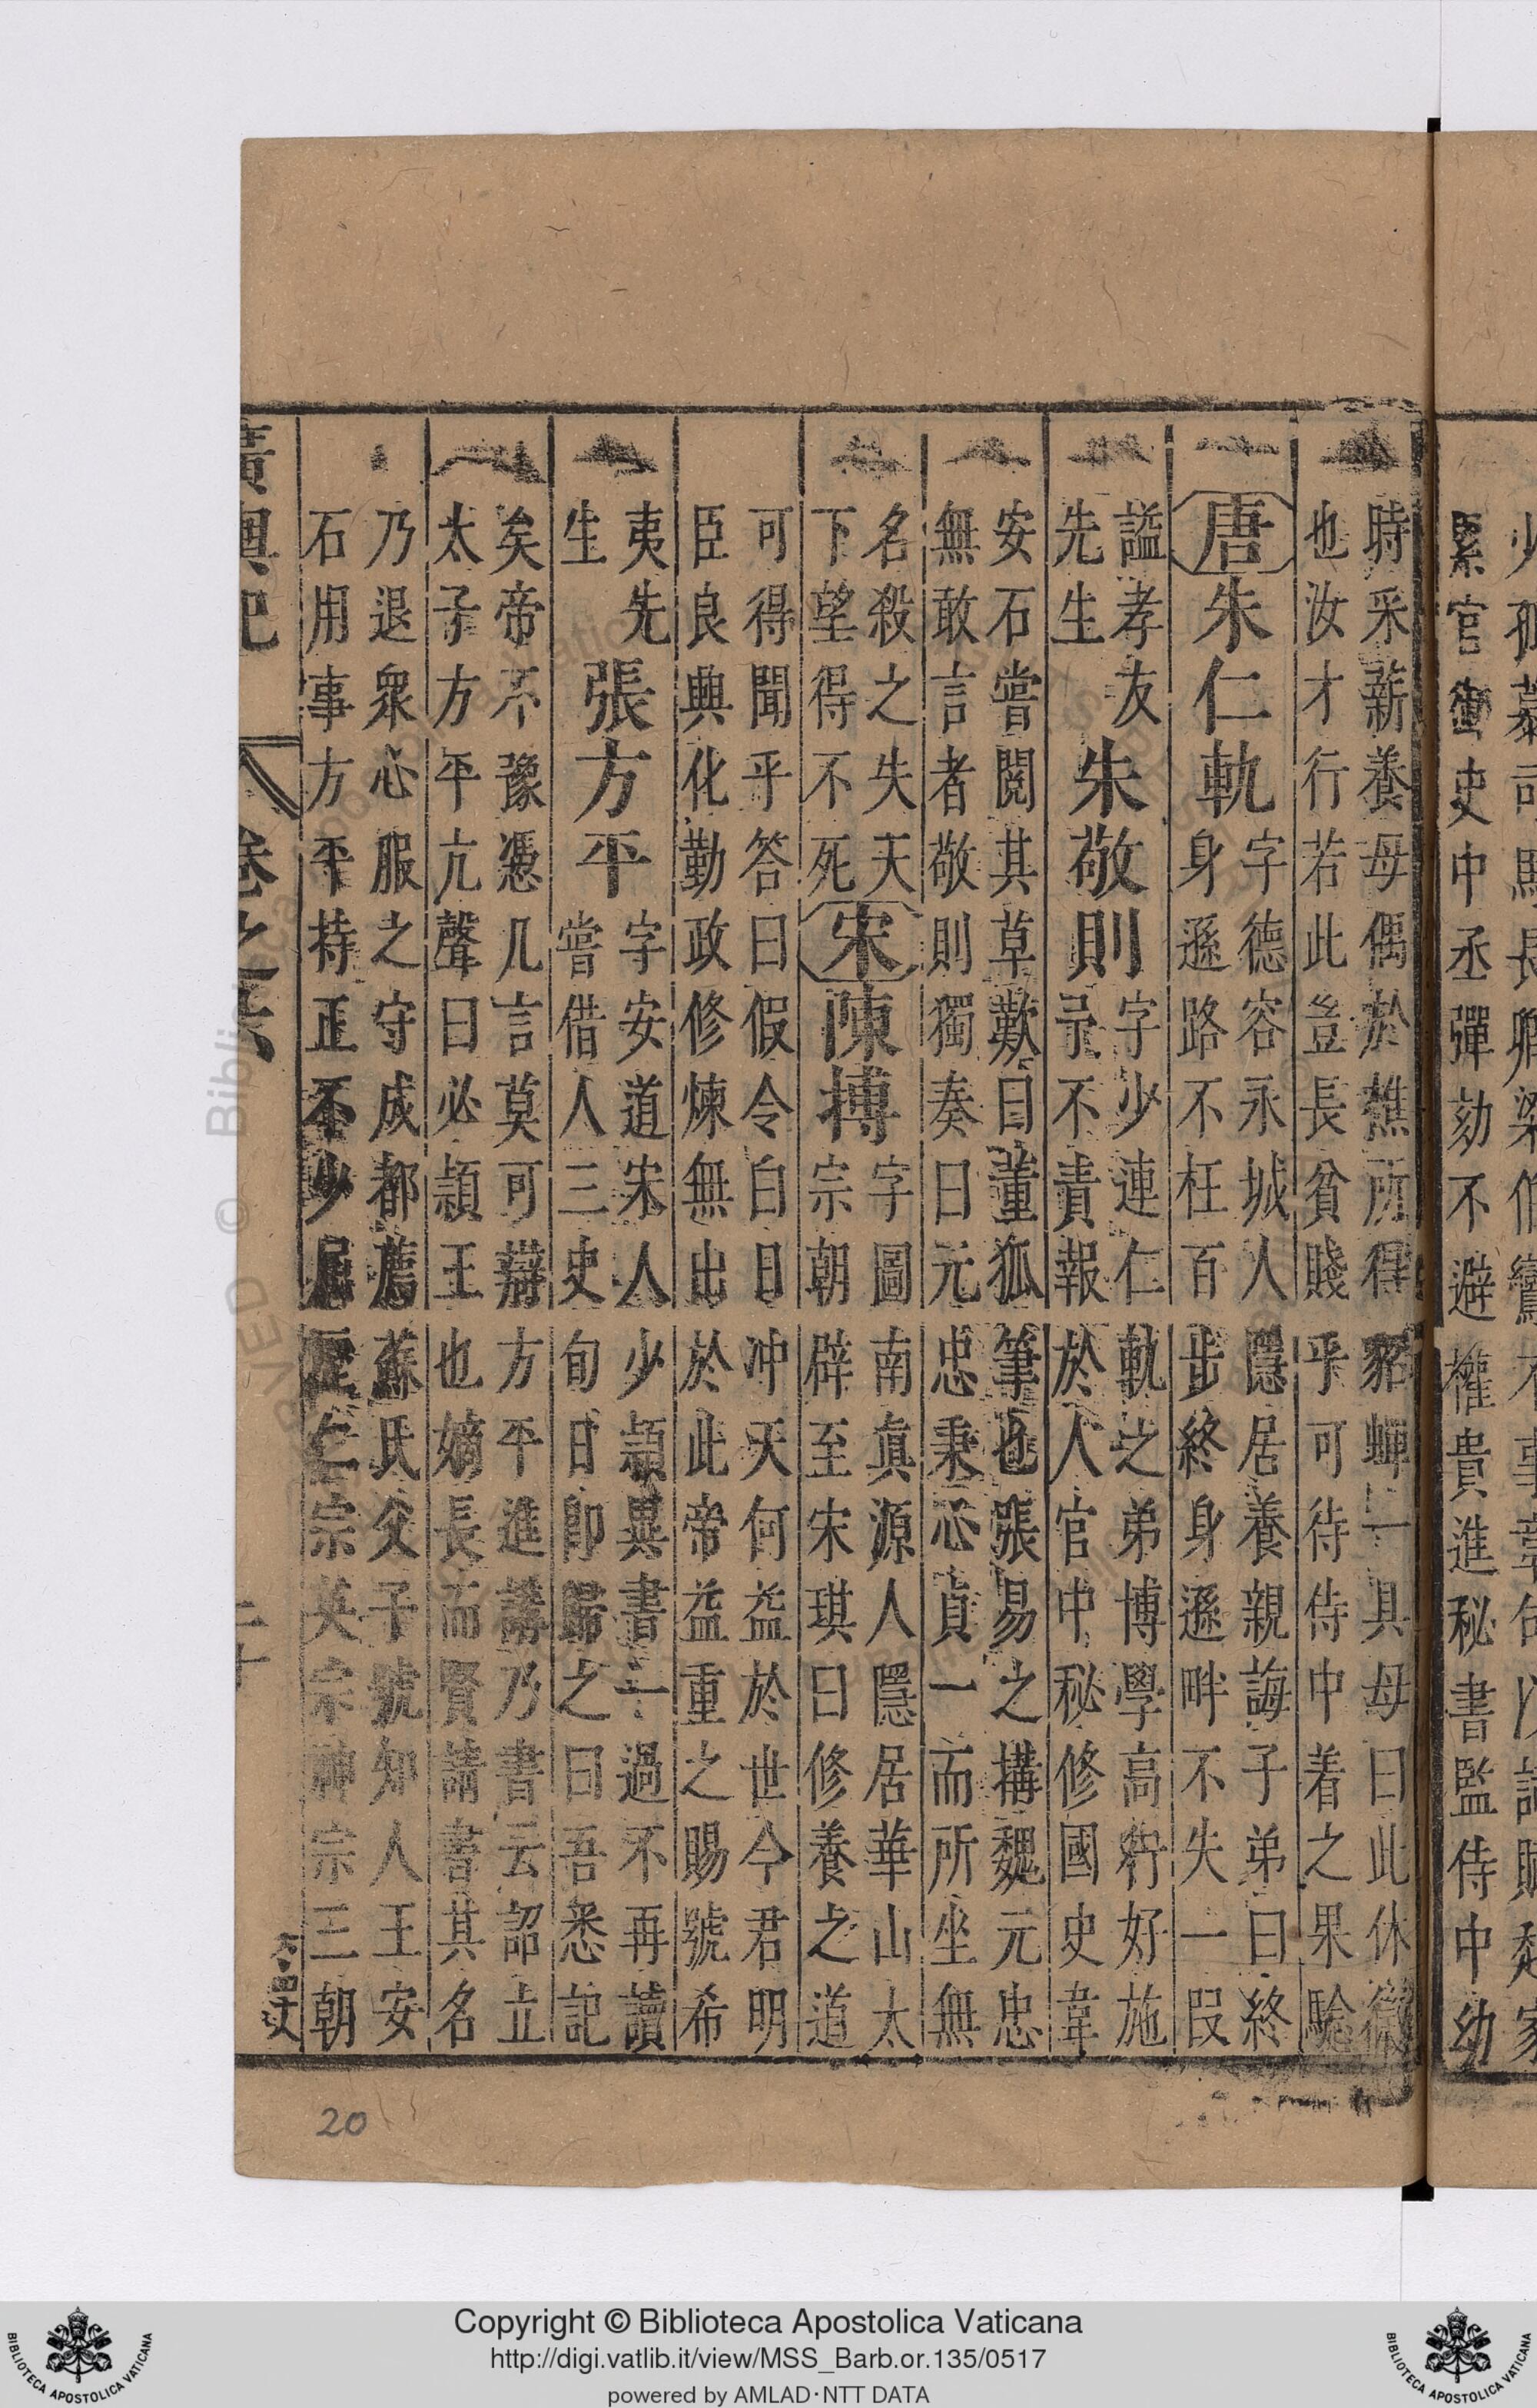 累官御史中丞彈劾不避權貴進秘書監侍中幼
時采薪養母偶於樵所得貂蟬一具母曰此休徵
也汝才行若此豈長貧賤乎可待侍中着之果驗
唐 朱仁軌 字德容永城人隱居養親誨子弟曰終
身遜路不枉百步終身遜畔不失一段
謚孝友
先生 朱敬則 字少連仁軌之弟博學高行好施
予不責報於人官中秘修國史韋
安石嘗閱其草歎曰董狐筆也張易之搆魏元忠
無敢言者敬則獨奏曰元忠秉心貞一而所坐無
名殺之失天
下望得不死 宋 陳摶 字圖南眞源人隱居華山太
宗朝辟至宋琪曰修養之道
可得聞乎答曰假令白日冲天何益於世今君明
臣良典化勤政修煉無出於此帝益重之賜號希
夷先
生 張方平 字安道宋人少頴異書一過不再讀
嘗借人三史旬日即歸之曰吾悉記
矣帝不豫憑几言莫可辯方平進請乃書云詔立
太子方平亢聲曰必頴王也嫡長而賢請書其名
乃退衆心服之守成都薦蘇氏父子號知人王安
石用事方平持正不少屈歷仁宗英宗神宗三朝
廣輿記 卷之六
20
© Biblioteca Apostolica Vaticana
Copyright © Biblioteca Apostolica Vaticana
http://digi.vatlib.it/view/MSS_Barb.or.135/0517
powered by AMLAD·NTT DATA
BIBLIOTECA APOSTOLICA VATICANA
BIBLIOTECA APOSTOLICA VATICANA